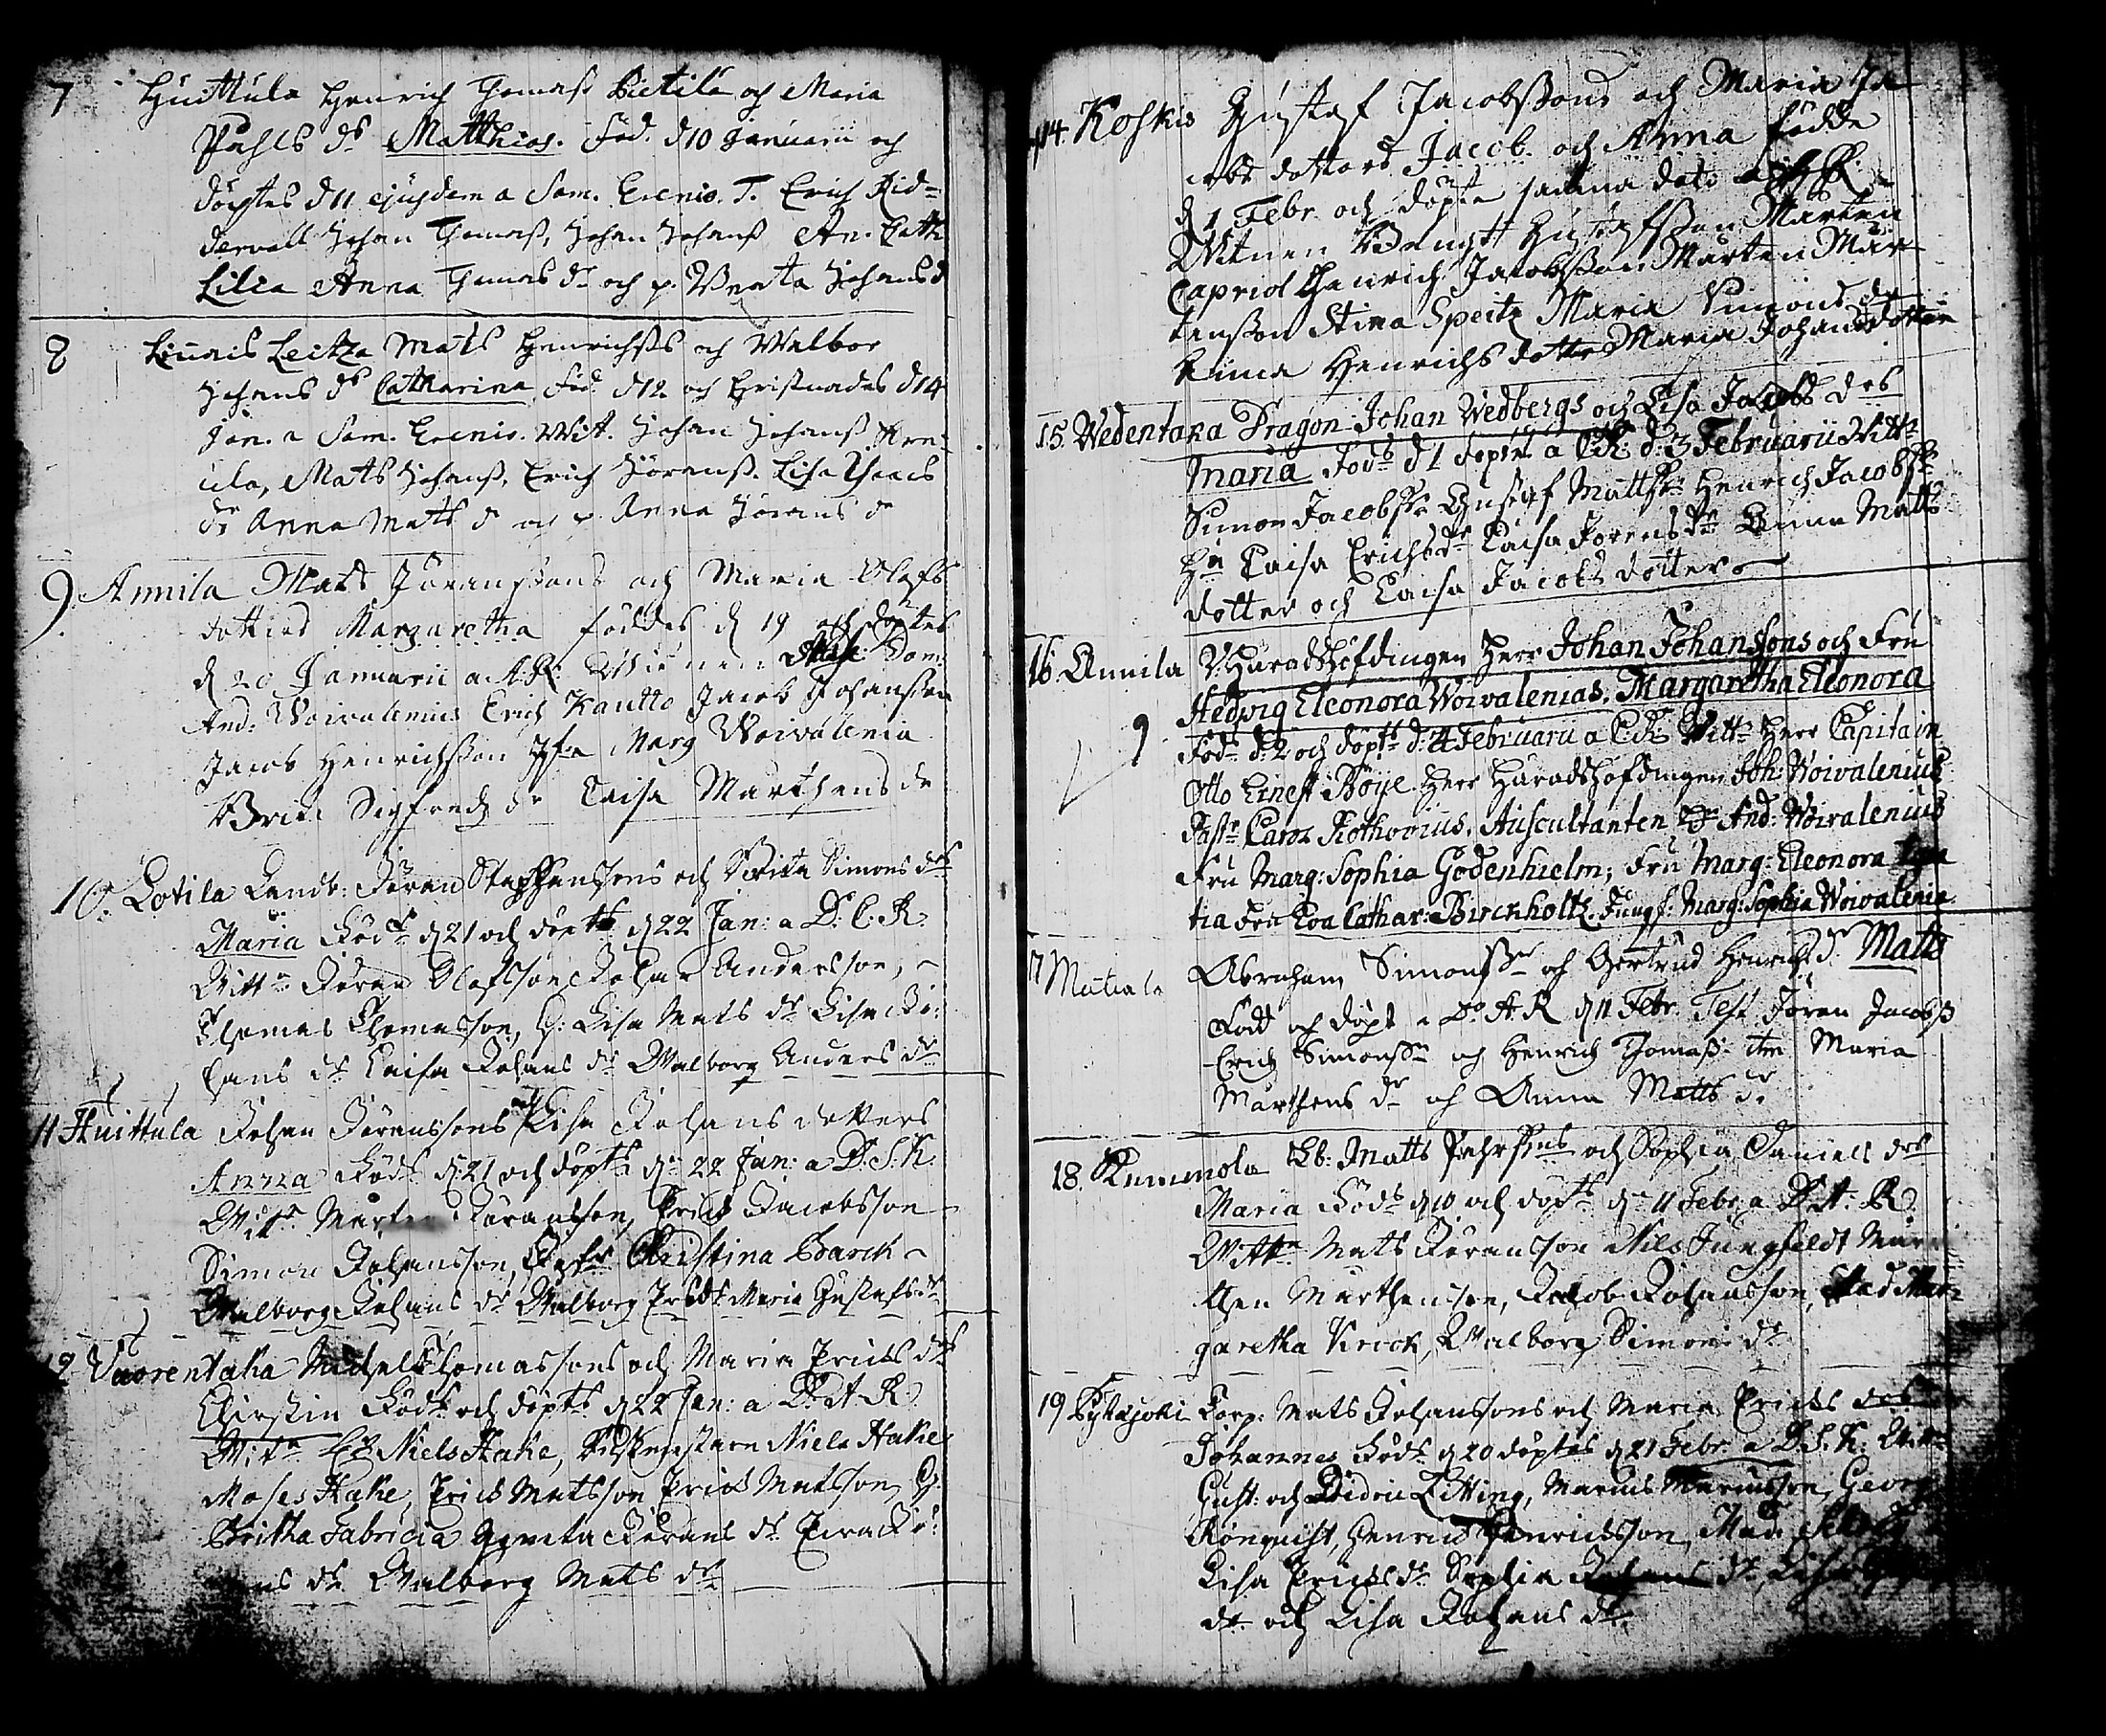 7 Huittula Henrich Thomass Pietilä och Maria
Påhls dr Matthias. Föd. d 10 Januarii och
döptes d 11 ejusdem a Som. Ecenio. T. Erich Rid=
dervall Johan Thomass, Johan Johanss An. Cath.
Lilia Anna Thomas dr och p. Beata Johans d
8 Leitza Mats Henrichss och Walbor
Johans dr Catharina Föd d 12 och Christnades d 14
Jan. a Som. Ecenio. Wit. Johan Johanss
ula, Matts Johanss, Erich Jöranss. Lisa
dr Anna Mats dr och p. Anna Jörans dr
9. Annila Mats Jöranssons och Maria Olofs
dotters Margaretha föddes d 19 och döptes
d 20 Januarii a A:R: Witnen Dom:
And: Woivalenius Erich Kautto Jacob Johansson
Jacob Henrichsson Jgfr Marg Woivalenia
Brita Sigfreds dr Caisa Marthens dr
10. Lotila Landb: Jöran Staphanssons och Brita Simons drs
Maria Föds d 21 och döpts d 22 Jan: a D: C. R.
Wittn Jöran Olofsson Johan Andersson,
Thomas Thomasson, H: Lisa Mats dr Lisa
hans dr Caisa Johans dr Walborg Anders dr
11 Huittula Johan Jöranssons och Lisa Johans dotters
Anna Föds d 21 och döpts d 22 Jan: a D. S. K.
Witn Mårten Jöransson, Erich Jacobsson
Simon Johansson, Jgfr Christina Barck
Walborg Johans dr Walborg Erichs dr Maria Gustafs dr
12 Vuorentaka Michel Thomassons och Maria Erichs drs
Chirstin Föds och döpts d 22 Jan: a D: A. R.
Witn Niels Hake, Niels Hake
Moses Hake, Erich Matsson Erich Matsson, H.
Britha Fabricia Agneta Jörans dr
ans dr Walborg Mats dr
14. Koskis Gustaf Jacobssons och Maria Ja
cobs dotters Jacob och Anna födde
d 1 Febr och döpte samma dato
Witnen Bengt Gustafsson Mårten
Capriol Henrich Jacobsson Mårten Mår
tensson Stina Speitz Maria Simons dr
Henrichs dotter Maria Johans dotter
15. Wedentaka Dragon Johan Wedbergs och Lisa Jacobs drs
Maria Föds d 1 döpts a d. 3 Februarii Wittn
Simon Jacobssn Gustaf Mattssn Henrich Jacobssn
Hu Caisa Erichs dr Caisa Jörens dr Anna Matts
dotter och Caisa Jacobs dotter
16. Annila V. Häradshöfdingen Herr Johan Johanssons och Fru
Hedvig Eleonora Woivalenias. Margaretha Eleonora
Föds d: 2 och döpts d: 4 Februarii a Wittn Herr Capitain
Otto Ernest Böije Herr Häradshöfdingen Joh: Woivalenius
Pastr Carol Rothovius, Auscultanten Hr And: Woivalenius
Fru Marg: Sophia Godenhielm, Fru Marg: Eleonora
tia Fru Eva Cathar: Birckholtz. Jungf: Marg: Sophia Woivalenia
17 Mutiala Abraham Simonssn och Gertrud Henrichs dr Matts
Född och döpt a Do A. R d 11 Febr. Test. Jören Jacobss
Erich Simonssn och Henrich Thomass item Maria
Marthens dr och Anna Matts dr
18. Kummola Lb: Matts Påhrssns och Sophia Daniels drs
Maria Föds d 10 och döpts d 11 Febr: a D: A. R
Wittn Mats Jöransson Nils Jungfeldt Mår
then Marthensson, Jacob Johansson, Mad Mar=
garetha Krook, Walborg Simons dr
19 Pyhäjoki Corp: Mats Johanssons och Maria Erichs drs
Johannes Föds d 20 döptes d 21 Febr. a D. S. K.
Gust: och Didric Litting, Marcus Marcusson, Georg
Rönquist, Henrich Henrichsson, Mad:
Lisa Erichs dr Sophia Johans dr, Lisa
dr och Lisa Johans dr.